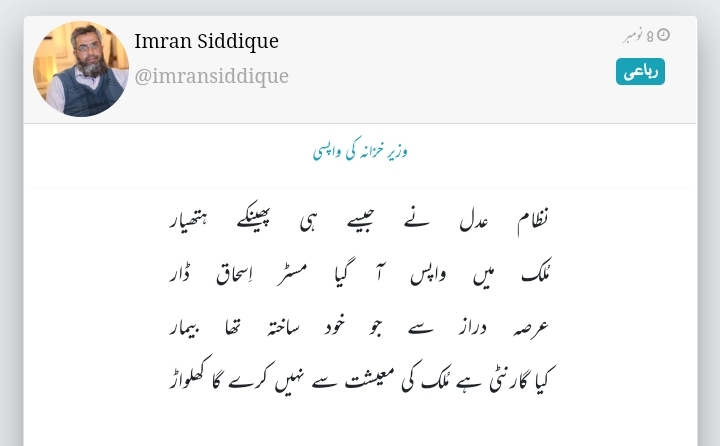 Imran Siddique
@imransiddique
8 نومبر
رباعی
وزیر خزانہ کی واپسی
نظام عدل نے جیسے ہی پھینکے ہتھیار
مُلک میں واپس آ گیا مسٹر اِسحاق ڈار
عرصہ دراز سے جو خود ساختہ تھا بیمار
کیا گارنٹی ہے مُلک کی معیشت سے نہیں کرے گا کھلواڑ